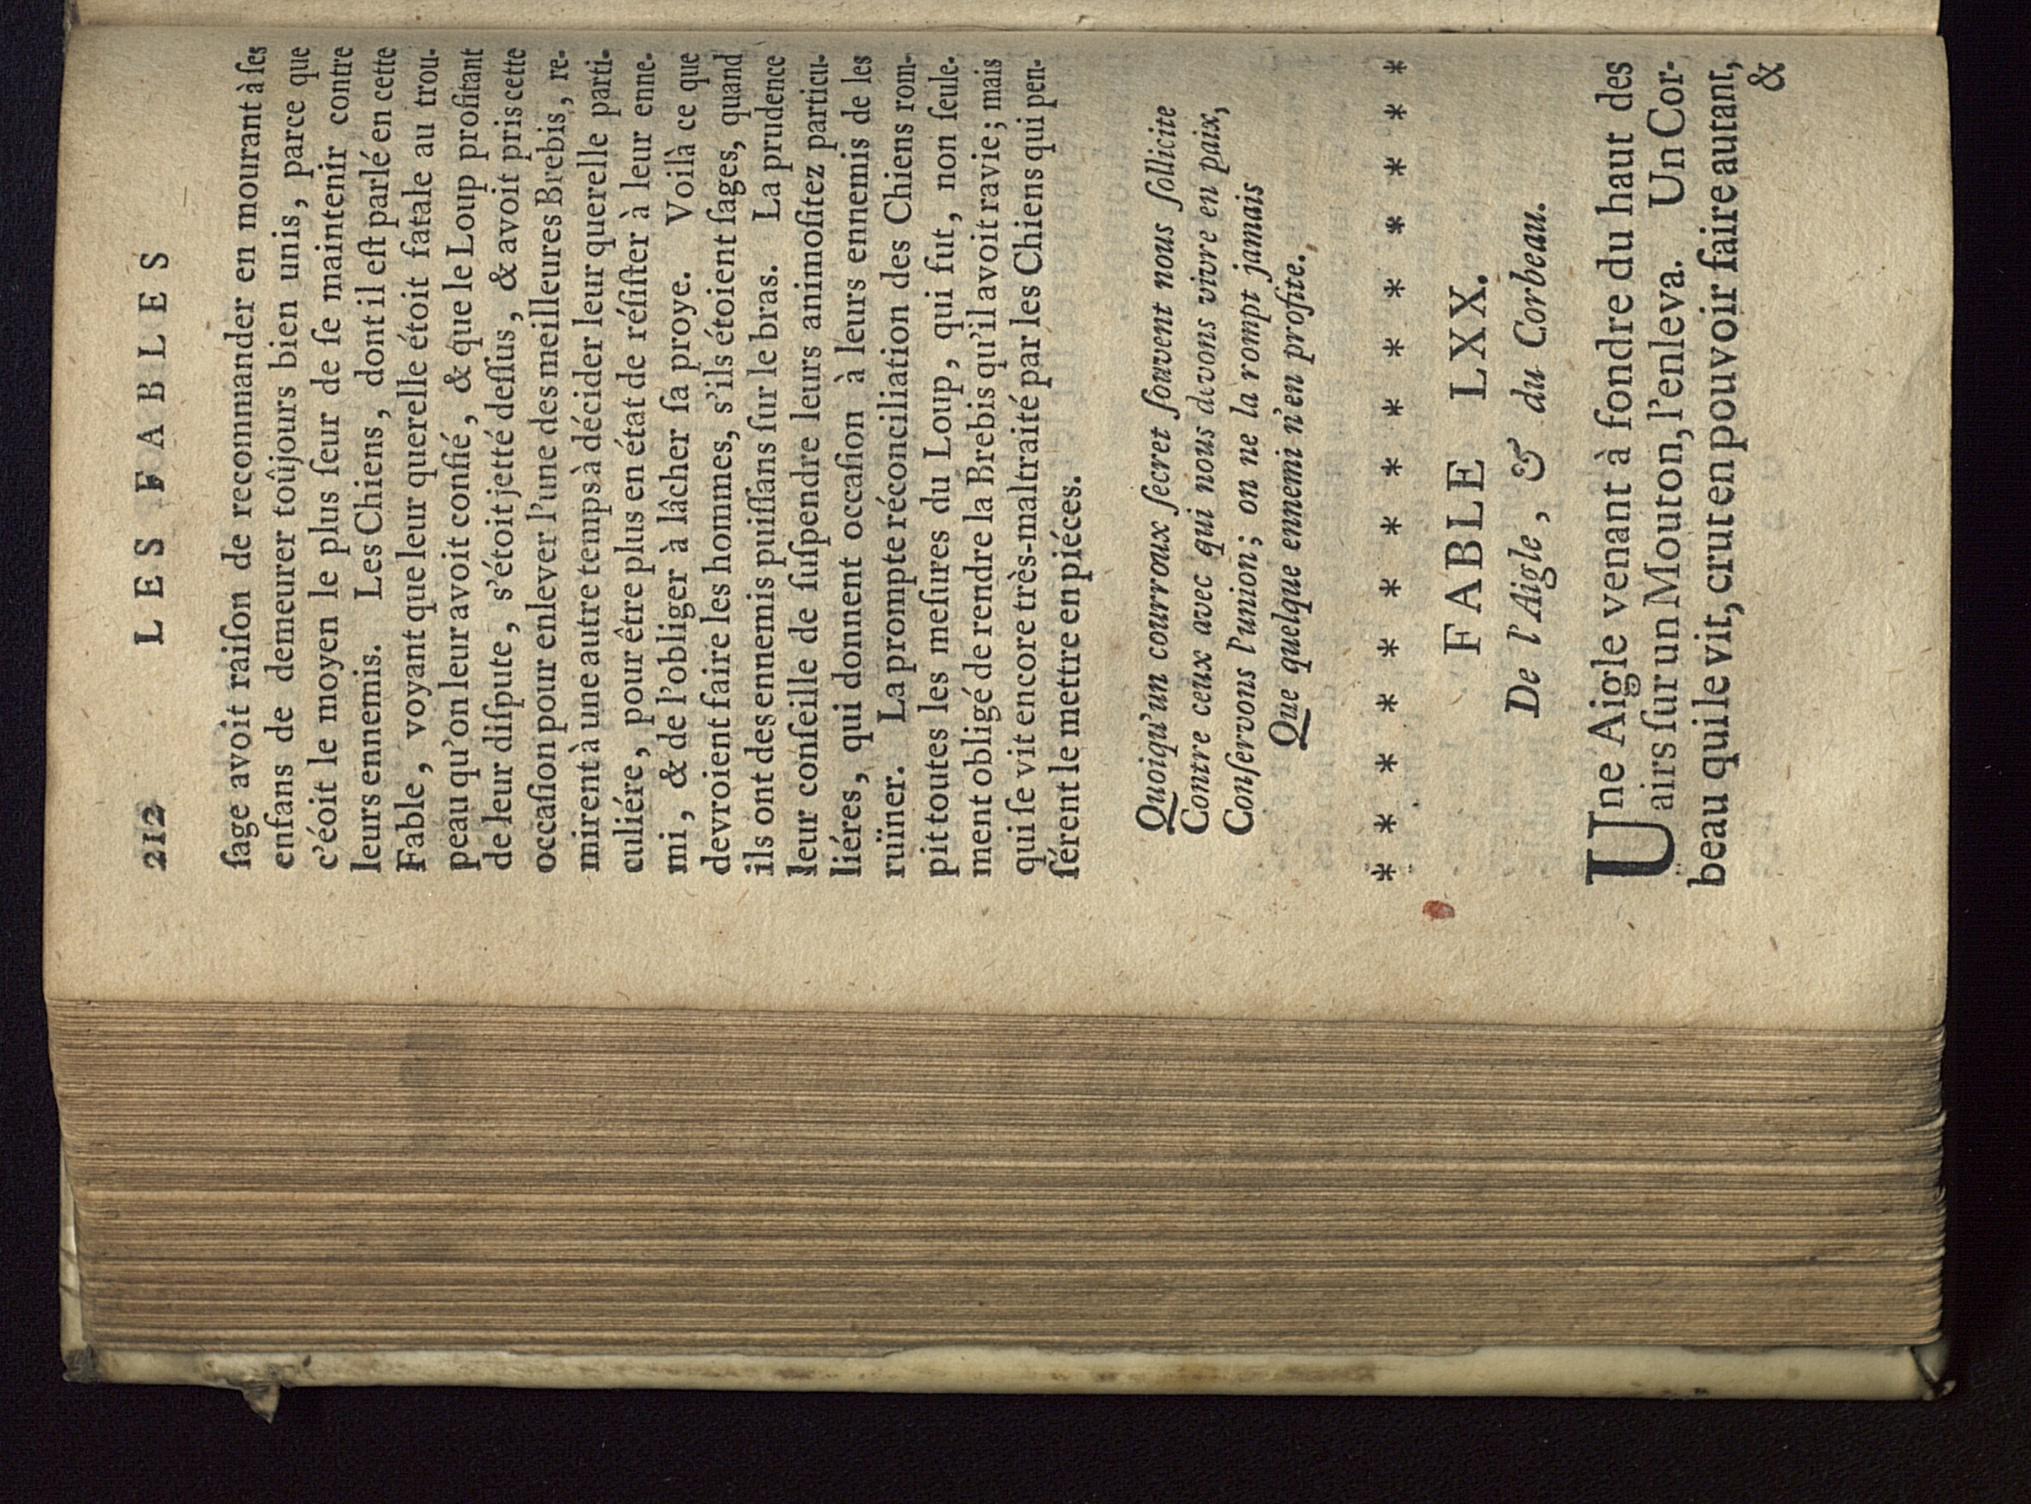 212 LES FABLES
ſage avoit raiſon de recommander en mourant à ſes
enfans de demeurer toûjours bien unis, parce que
c'éoit le moyen le plus ſeur de ſe maintenir contre
leurs ennemis. Les Chiens, dont il eſt parlé en cette
Fable, voyant que leur querelle étoit fatale au trou-
peau qu'on leur avoit confié, & que le Loup profitant
de leur diſpute, s'étoit jetté deſſus, & avoit pris cette
occaſion pour enlever l'une des meilleures Brebis, re-
mirent à une autre temps à décider leur querelle parti-
culiére, pour être plus en état de réſiſter à leur enne-
mi, & de l'obliger à lâcher ſa proye. Voilà ce que
devroient faire les hommes, s'ils étoient ſages, quand
ils ont des ennemis puiſſans ſur le bras. La prudence
leur conſeille de ſuſpendre leurs animoſitez particu-
liéres, qui donnent occaſion à leurs ennemis de les
ruïner. La prompte réconciliation des Chiens rom-
pit toutes les meſures du Loup, qui fut, non ſeule-
ment obligé de rendre la Brebis qu'il avoit ravie; mais
qui ſe vit encore très-maltraité par les Chiens qui pen-
ſérent le mettre en piéces.
Quoiqu'un courroux ſecret ſouvent nous ſollicite
Contre ceux avec qui nous devons vivre en paix,
Conſervons l'union; on ne la rompt jamais
Que quelque ennemi n'en profite.
* * * * * * * * * * * * * * *
FABLE LXX.
De l'Aigle, & du Corbeau.
Une Aigle venant à fondre du haut des
airs ſur un Mouton, l'enleva. Un Cor-
beau qui le vit, crut en pouvoir faire autant,
&